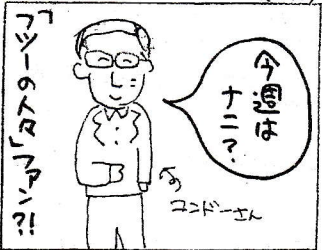 今週は
ナニ?
「フツーの人々」ファン?!
コンドーさん